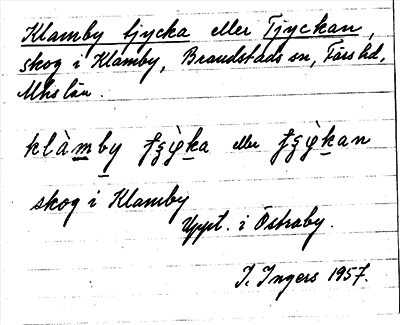 Klamby tjycka eller Tjyckan,
skog i Klamby, Brandstads sn, Färs hd,
Mhs län.
klàmby eller
skog i Klamby
Uppt. i Östraby.
I. Ingers 1957.